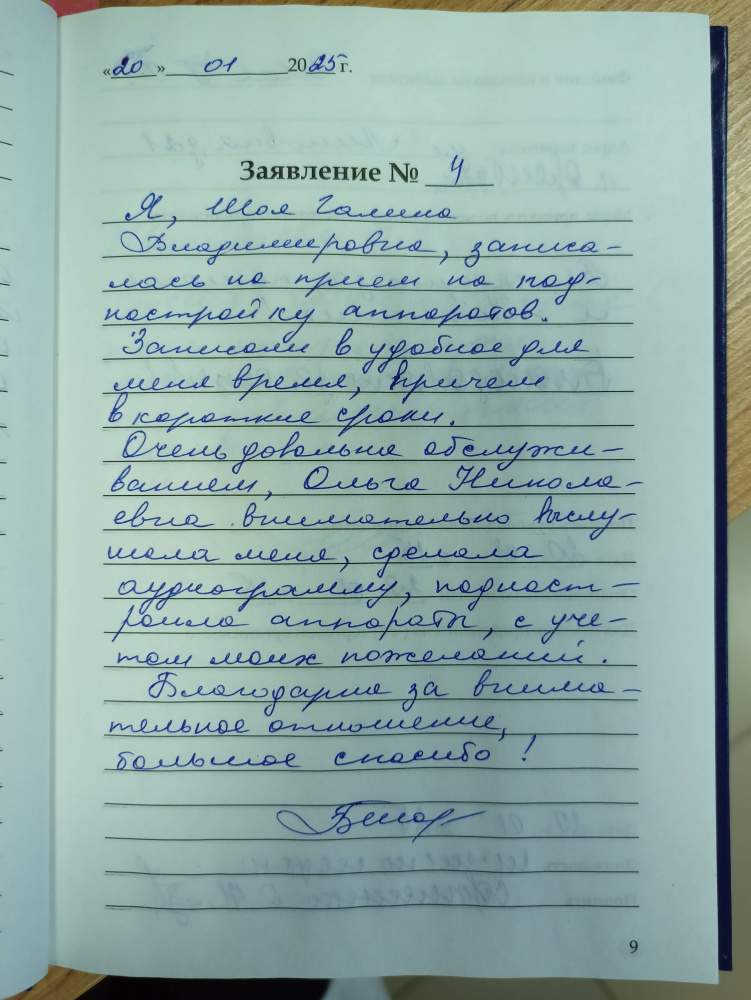 «20» 01 2025 г.
Заявление № 4
Я, Шоя Галина
Владимировна, записа-
лась на прием на под-
настройку аппаратов.
Записали в удобное для
меня время, причем
в короткие сроки.
Очень довольна обслужи-
ванием, Ольга Никола-
евна внимательно выслу-
шала меня, сделала
аудиограмму, поднаст-
роила аппараты, с уче-
том моих пожеланий.
Благодарна за внима-
тельное отношение,
большое спасибо!
9